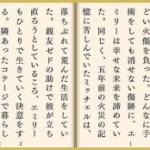 どい火傷を負った。どんなに手
術をしても消せない傷跡に、エ
ミリーは幸せな未来を諦めてい
た。同じく、五年前の火災の記
憶に苦しんでいたミッチェルは、
落ちぶれて荒んだ生活をしてい
た。親友ゼドの助けで彼が立ち
直ろうとしているころ、エミリー
もひとりで生きていく決意をす
る。隣あったコテージで暮らし